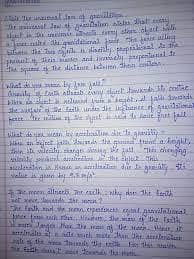 State the universal law of gravitation
The universal law of gravitation states that every
object in the universe attracts every other object with
a force called the gravitational force. The force acting
between the two objects is directly proportional to the
product of their masses and inversely proportional to
the square of the distance between their centers.
What do you mean by free fall?
Gravity of Earth attracts every object towards its centre.
When an object is released from a height, it falls towards
the surface of the Earth under the influence of gravitational
force. The motion of the object is said to have free fall
What do you mean by acceleration due to gravity?
When an object falls towards the ground from a height,
then its velocity changes during the fall. This changing
velocity produces acceleration in the object. This
acceleration is known as acceleration due to gravity. Its
value is given by 9.8 m/s²
If the moon attracts the Earth, why does the Earth
not move towards the moon?
The Earth and the moon experience equal gravitational
forces from each other. However, the mass of the Earth
is much larger than the mass of the moon. Hence, it
accelerates at a rate much lesser than the acceleration
rate of the moon towards the Earth. For this reason,
the Earth does not move towards the moon.